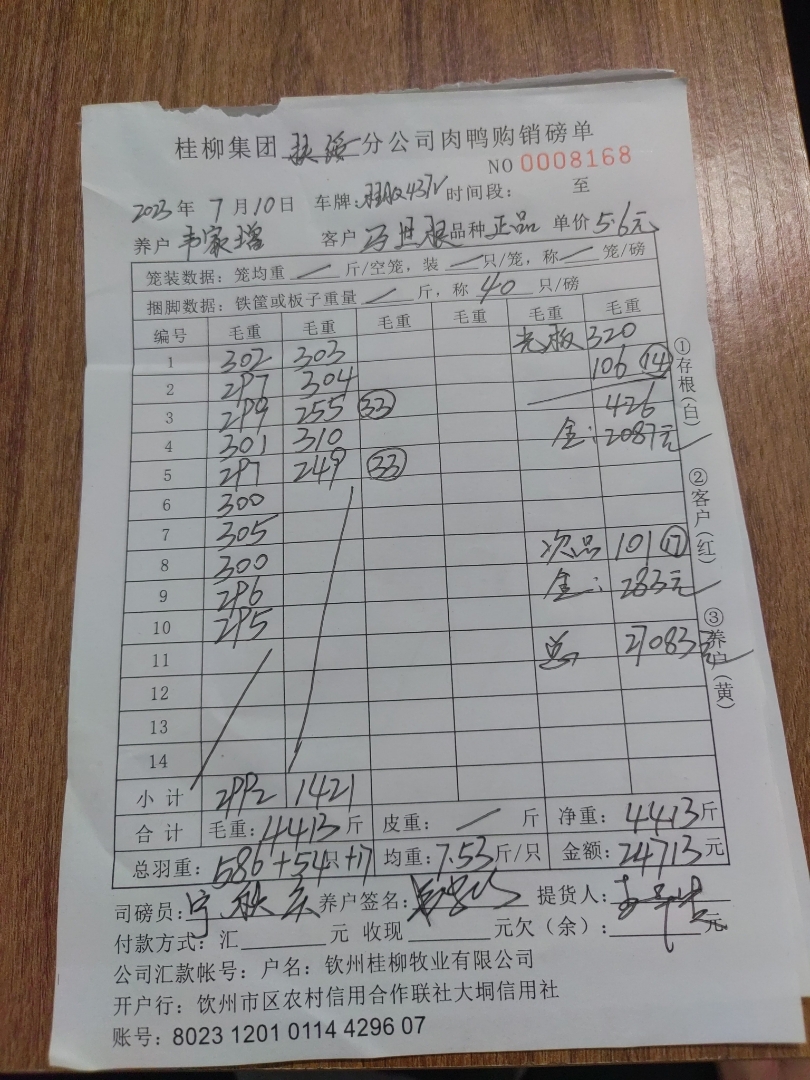 桂柳集团 扶绥 分公司肉鸭购销磅单
NO 0008168
2023年 7月10日 车牌: 时间段: 至
养户 韦家瑠 客户 品种 正品 单价 5.6元
笼装数据：笼均重 / 斤/空笼，装 / 只/笼，称 / 笼/磅
捆脚数据：铁筐或板子重量 / 斤，称 40 只/磅
编号 毛重 毛重 毛重 毛重 毛重 毛重
1 302 303 光板 320
2 297 304 106 (14)
3 299 255 (33) 426
4 301 310 金: 2087元
5 297 249 (33)
6 300
7 305 次品 101 (17)
8 300 金: 283元
9 296
10 295 总 27083元
11
12
13
14
小计 2992 1421
合计 毛重: 4413斤 皮重: / 斤 净重: 4413斤
总羽重: 586+54只+17 均重: 7.53斤/只 金额: 24713元
司磅员: 养户签名: 提货人:
付款方式: 汇 元 收现 元欠（余）: 元
公司汇款帐号：户名：钦州桂柳牧业有限公司
开户行：钦州市区农村信用合作联社大垌信用社
账号：8023 1201 0114 4296 07
①存根(白)
②客户(红)
③养户(黄)